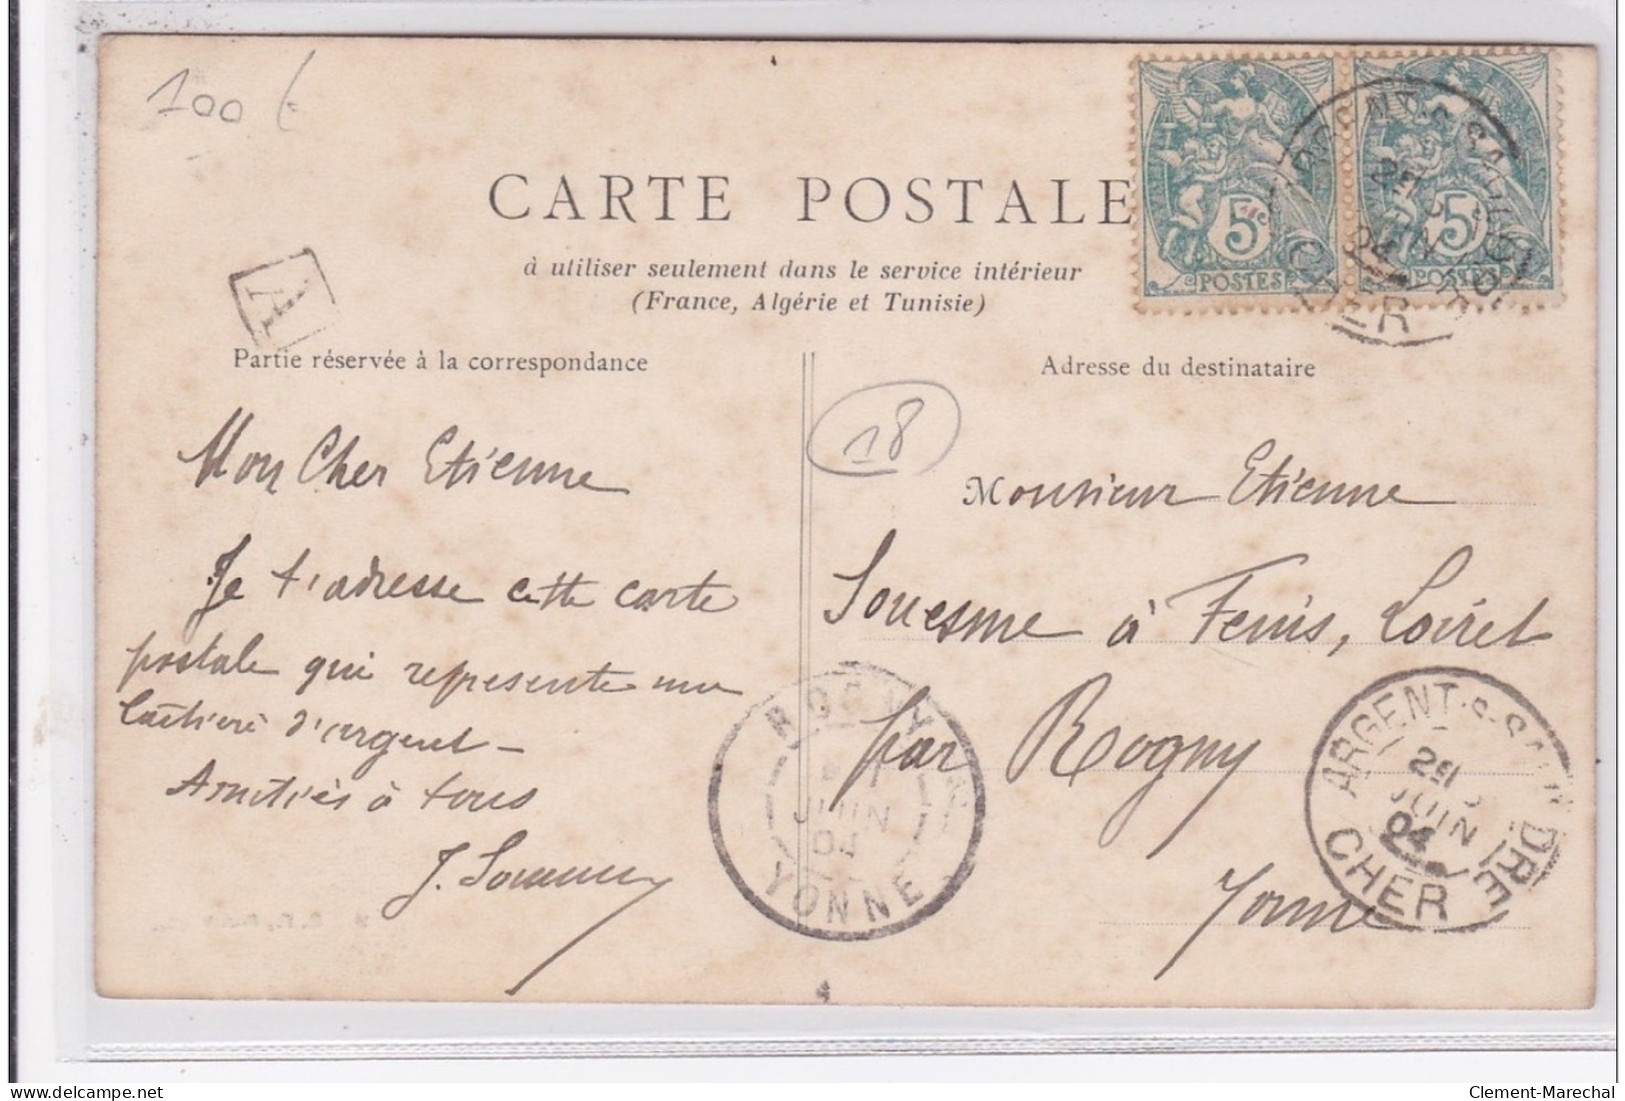 100 €
CARTE POSTALE
à utiliser seulement dans le service intérieur
(France, Algérie et Tunisie)
5c
POSTES
5c
POSTES
ARGENT-S-SAULDRE
29
JUIN
04
CHER
A
Partie réservée à la correspondance
Mon Cher Etienne
Je t'adresse cette carte
postale qui represente une
laitière d'argent -
Amitiés à tous
J. Souesme
18
Adresse du destinataire
Monsieur Etienne
Souesme à Feins, Loiret
par Rogny
Yonne
ROGNY
JUIN
04
YONNE
ARGENT-S-SAULDRE
29
JUIN
04
CHER
delcampe.net
Clement-Marechal